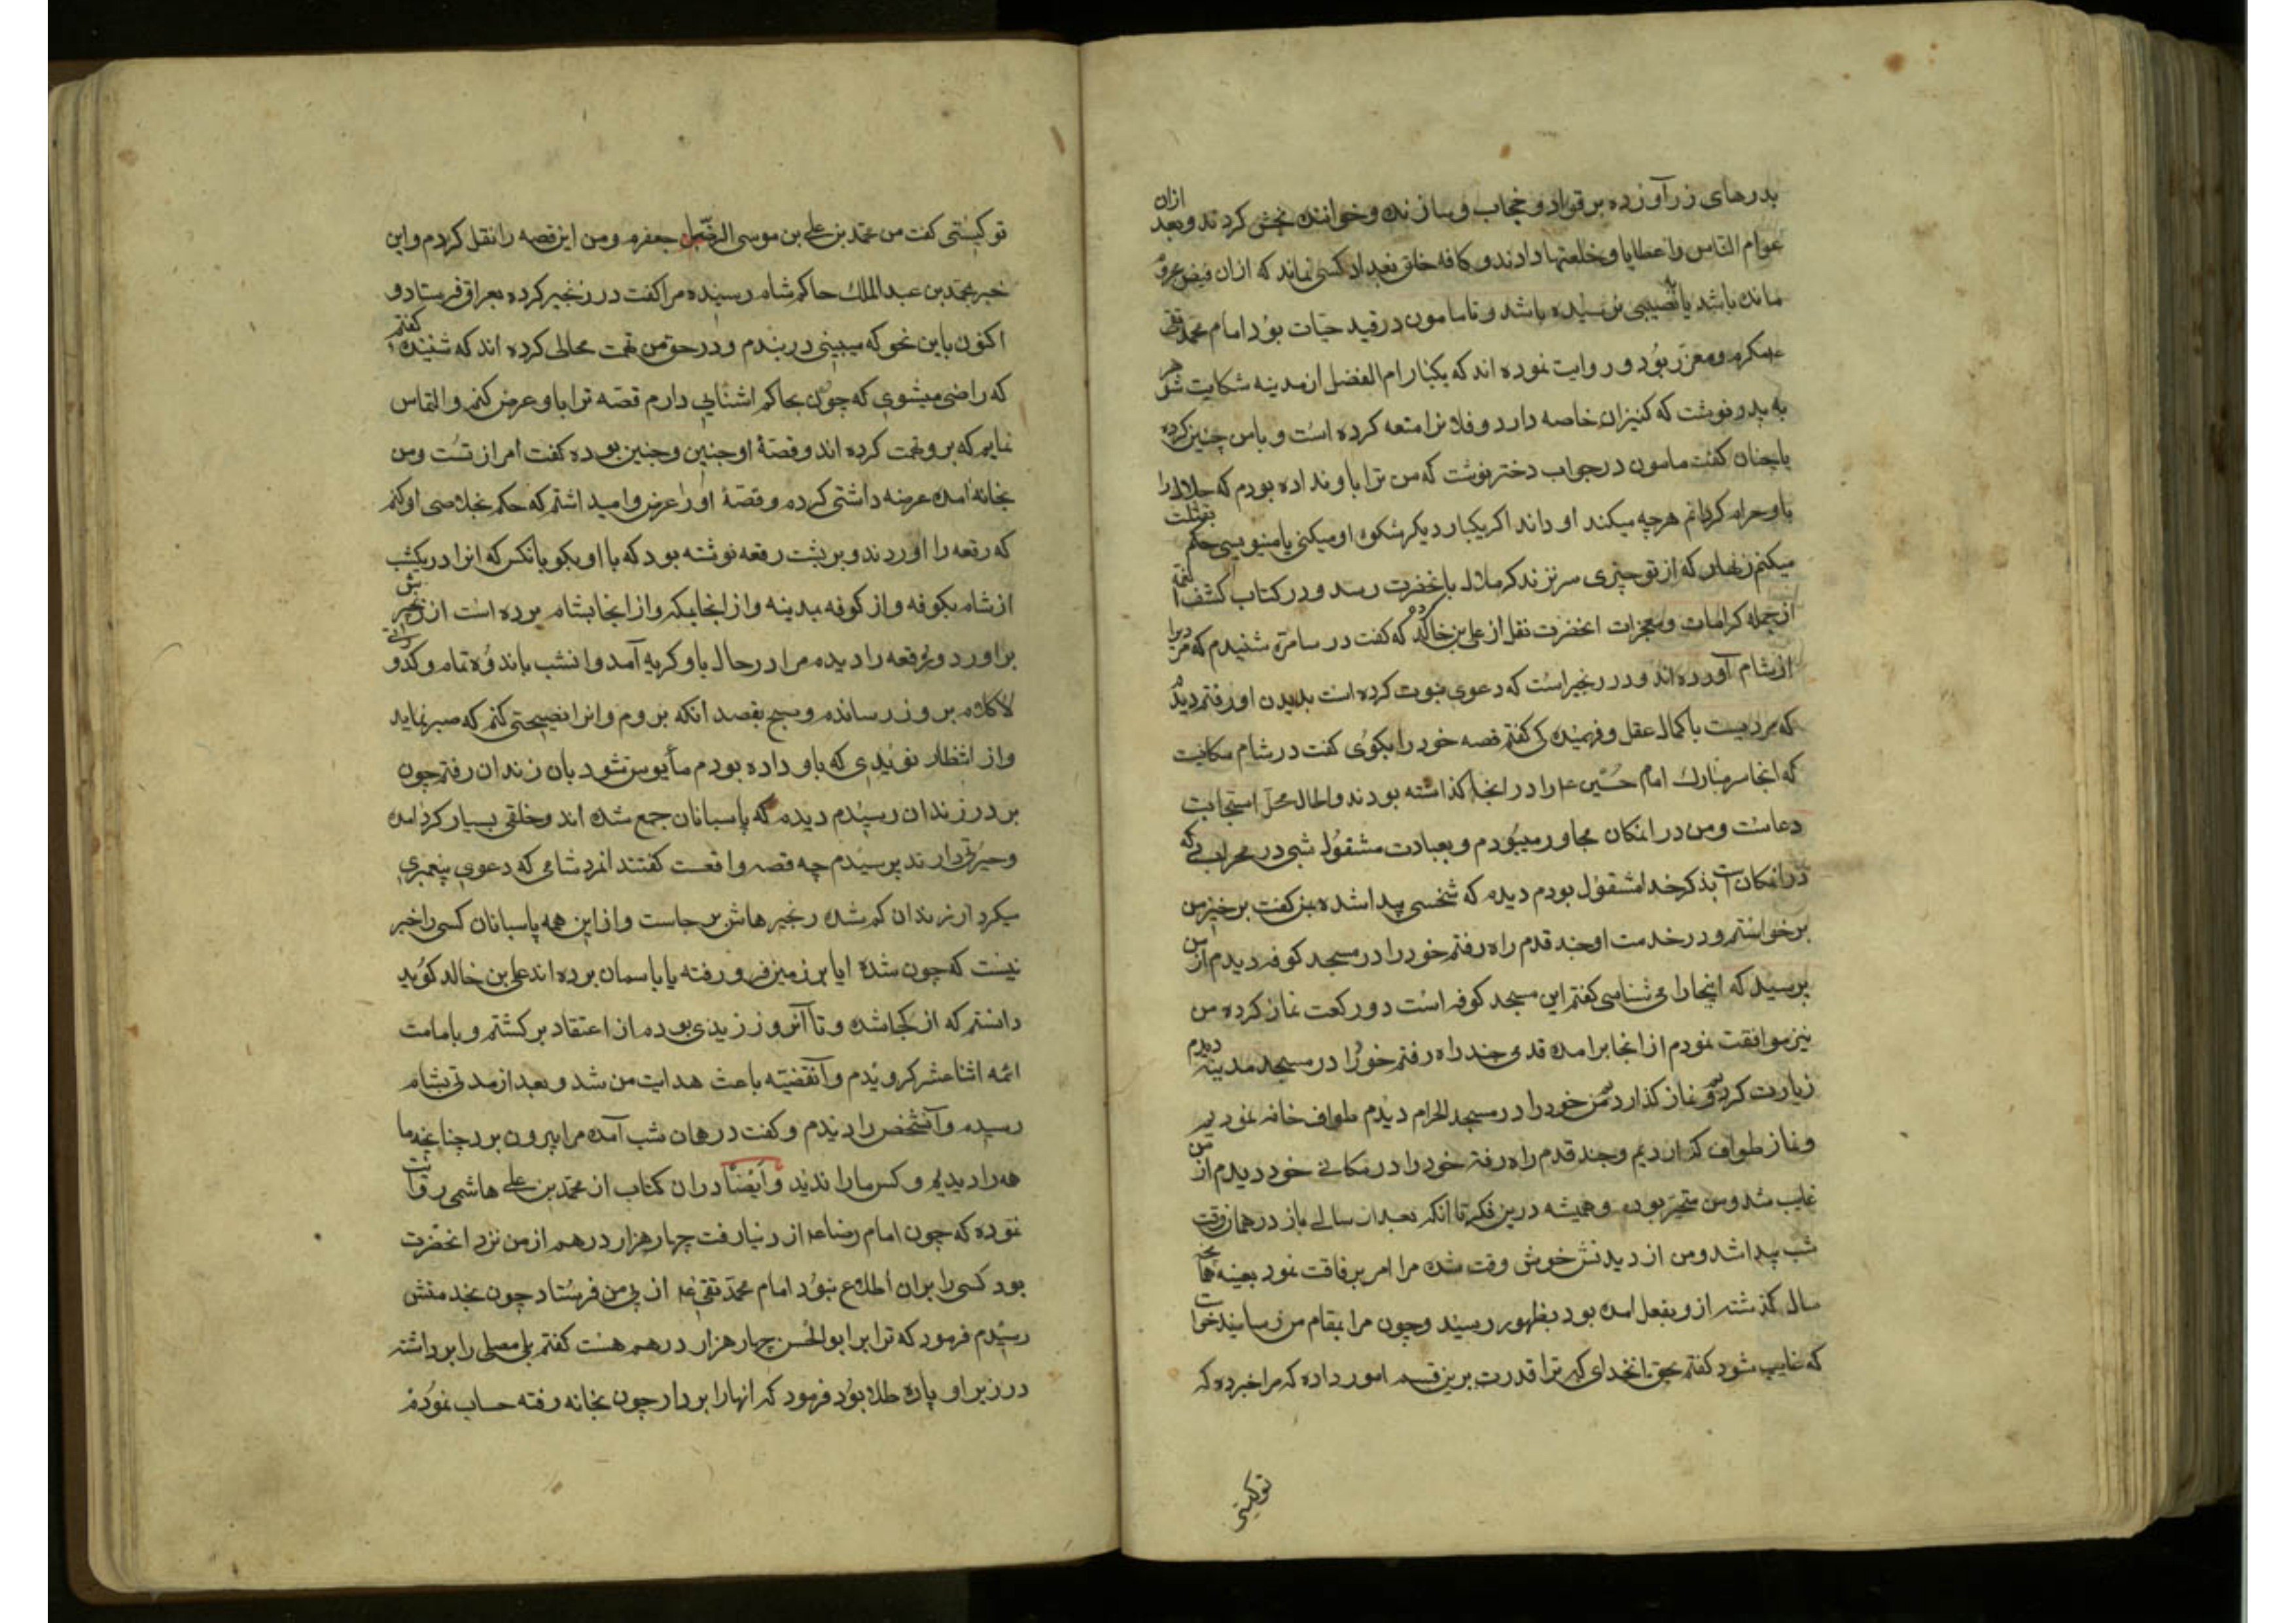 بدرهای زر آورده بر قواد و حجاب و سازنده و خواننده بخش کردند و بعد ازان
عوام الناس را عطایا و خلعتها دادند و کافه خلق بغداد کسی نماند که ازان فیض محروم
مانده باشد یا نصیبی نرسیده باشد و تا مامون در قید حیات بود امام محمد تقی
ع مکرم و معزز بود و روایت نموده اند که یکبار ام الفضل از مدینه شکایت شوهر
به پدر نوشت که کنیزان خاصه دارد و فلانرا متعه کرده است و بامن چنین کرده
یا چنان گفت مامون در جواب دختر نوشت که من ترا باو نداده بودم که حلال را
باو حرام کردانم هرچه میکند او داند اکر یکبار دیکر شکوه او میکنی یا مینویسی حکم بقتلت
میکنم زنهار که از تو چیزی سر نزند که ملال بآنحضرت رسد و در کتاب کشف الغمه
از جمله کرامات و معجزات انحضرت نقل از علی بن خالد کرده که کفت در سامره شنیدم که مردیرا
از شام آورده اند و در زنجیر است که دعوی نبوت کرده است بدیدن او رفتم دیدم
که مردیست با کمال عقل و فهمیدکی کفتم قصه خود را بکوی کفت در شام مکانیست
که انجا سر مبارک امام حسین ع را در انجا کذاشته بودند و الحال محل استجابت
دعاست و من در انمکان مجاور میبودم و بعبادت مشغول شبی در محرابی که
در انمکان است بذکر خدا مشغول بودم دیدم که شخصی پیدا شده بمن کفت برخیز من
برخواستم و در خدمت او چند قدم راه رفتم خود را در مسجد کوفه دیدم از من
پرسید که اینجا را می شناسی کفتم این مسجد کوفه است دو رکعت نماز کرده من
نیز موافقت نمودم از انجا برامده قدمی چند راه رفتم خود را در مسجد مدینه دیدم
زیارت کردیم و نماز کذاردیم من خود را در مسجد الحرام دیدم طواف خانه نمودیم
و نماز طواف کذاردیم و چند قدم راه رفته خود را در مکانی خود دیدم از من
غایب شد و من متحیر بودم و همیشه درین فکر تا انکه بعد از سالی باز در همان وقت
شب پیدا شد و من از دیدنش خوش وقت شده مرا امر برفاقت نمود بعینه همانچه
سال کذشته از و بفعل امده بود بظهور رسید و چون مرا بمقام من رسانید خواست
که غایب شود کفتم بحق انخدای که ترا قدرت برین قسم امور داده که مرا خبر ده که
توکیستی
تو کیستی کفت من محمد بن علی بن موسی الرضا بن جعفرم و من این قصه را نقل کردم و این
خبر بمحمد بن عبد الملک حاکم شام رسیده مرا کفت در زنجیر کرده بعراق فرستاد و
اکنون باین نحو که میبینی در بندم و در حق من تهمت محالی کرده اند که شنیده کفتم
که راضی میشوی که چون بحاکم اشنایی دارم قصه ترا باو عرض کنم و التماس
نمایم که بر و تهمت کرده اند و قصه او چنین و چنین بوده کفت امر از تست و من
بخانه امده عرضه داشتی کردم و قصه او را عرض و امید اشتم که حکم بخلاصی او کنم
که رقعه را اوردند و بر پشت رقعه نوشته بود که با او بکو بانکس که انرا در یکشب
از شام بکوفه و از کوفه بمدینه و از انجا بمکه و از انجا بشام برده است از زنجیرش
براورد و رقعه را دیدم مرا در حال باو کریه آمد و انشب باندوه تمام و کدورت
لاکلام بروز رساندم و صبح بقصد انکه بروم و انرا نصیحتی کنم که صبر نماید
و از انتظار نویدی که باو داده بودم مأیوس شود بان زندان رفتم چون
بر در زندان رسیدم دیدم که پاسبانان جمع شده اند و خلقی بسیار کرد امده
و حیرتی دارند پرسیدم چه قصه واقعست کفتند انمرد شامی که دعوی پیغمبری
میکرد از زندان کم شده زنجیرهاش بر جاست و از این همه پاسبانان کسی را خبر
نیست که چون شده ایا بر زمین فرو رفته یا باسمان برده اند علی بن خالد کوید
دانستم که از کجا شده و تا آنروز زیدی بودم از اعتقاد بر کشتم و بامامت
ائمه اثنا عشر کرویدم و آنقضیه باعث هدایت من شد و بعد از مدتی بشام
رسیدم و آنشخص را دیدم و کفت در همان شب آمده مرا بیرون برد چنانچه ما
همه را دیدیم و کس ما را ندید و ایضا دران کتاب از محمد بن علی هاشمی روایت
نموده که چون امام رضا ع از دنیا رفت چهار هزار درهم از من نزد انحضرت
بود کسی را بران اطلاع نبود امام محمد تقی ع از پی من فرستاد چون بخدمتش
رسیدم فرمود که ترا بر ابو الحسن چهار هزار درهم هست کفتم بلی مصلی را برداشته
در زیر او پاره طلا بود فرمود که انها را بردار چون بخانه رفته حساب نمودم